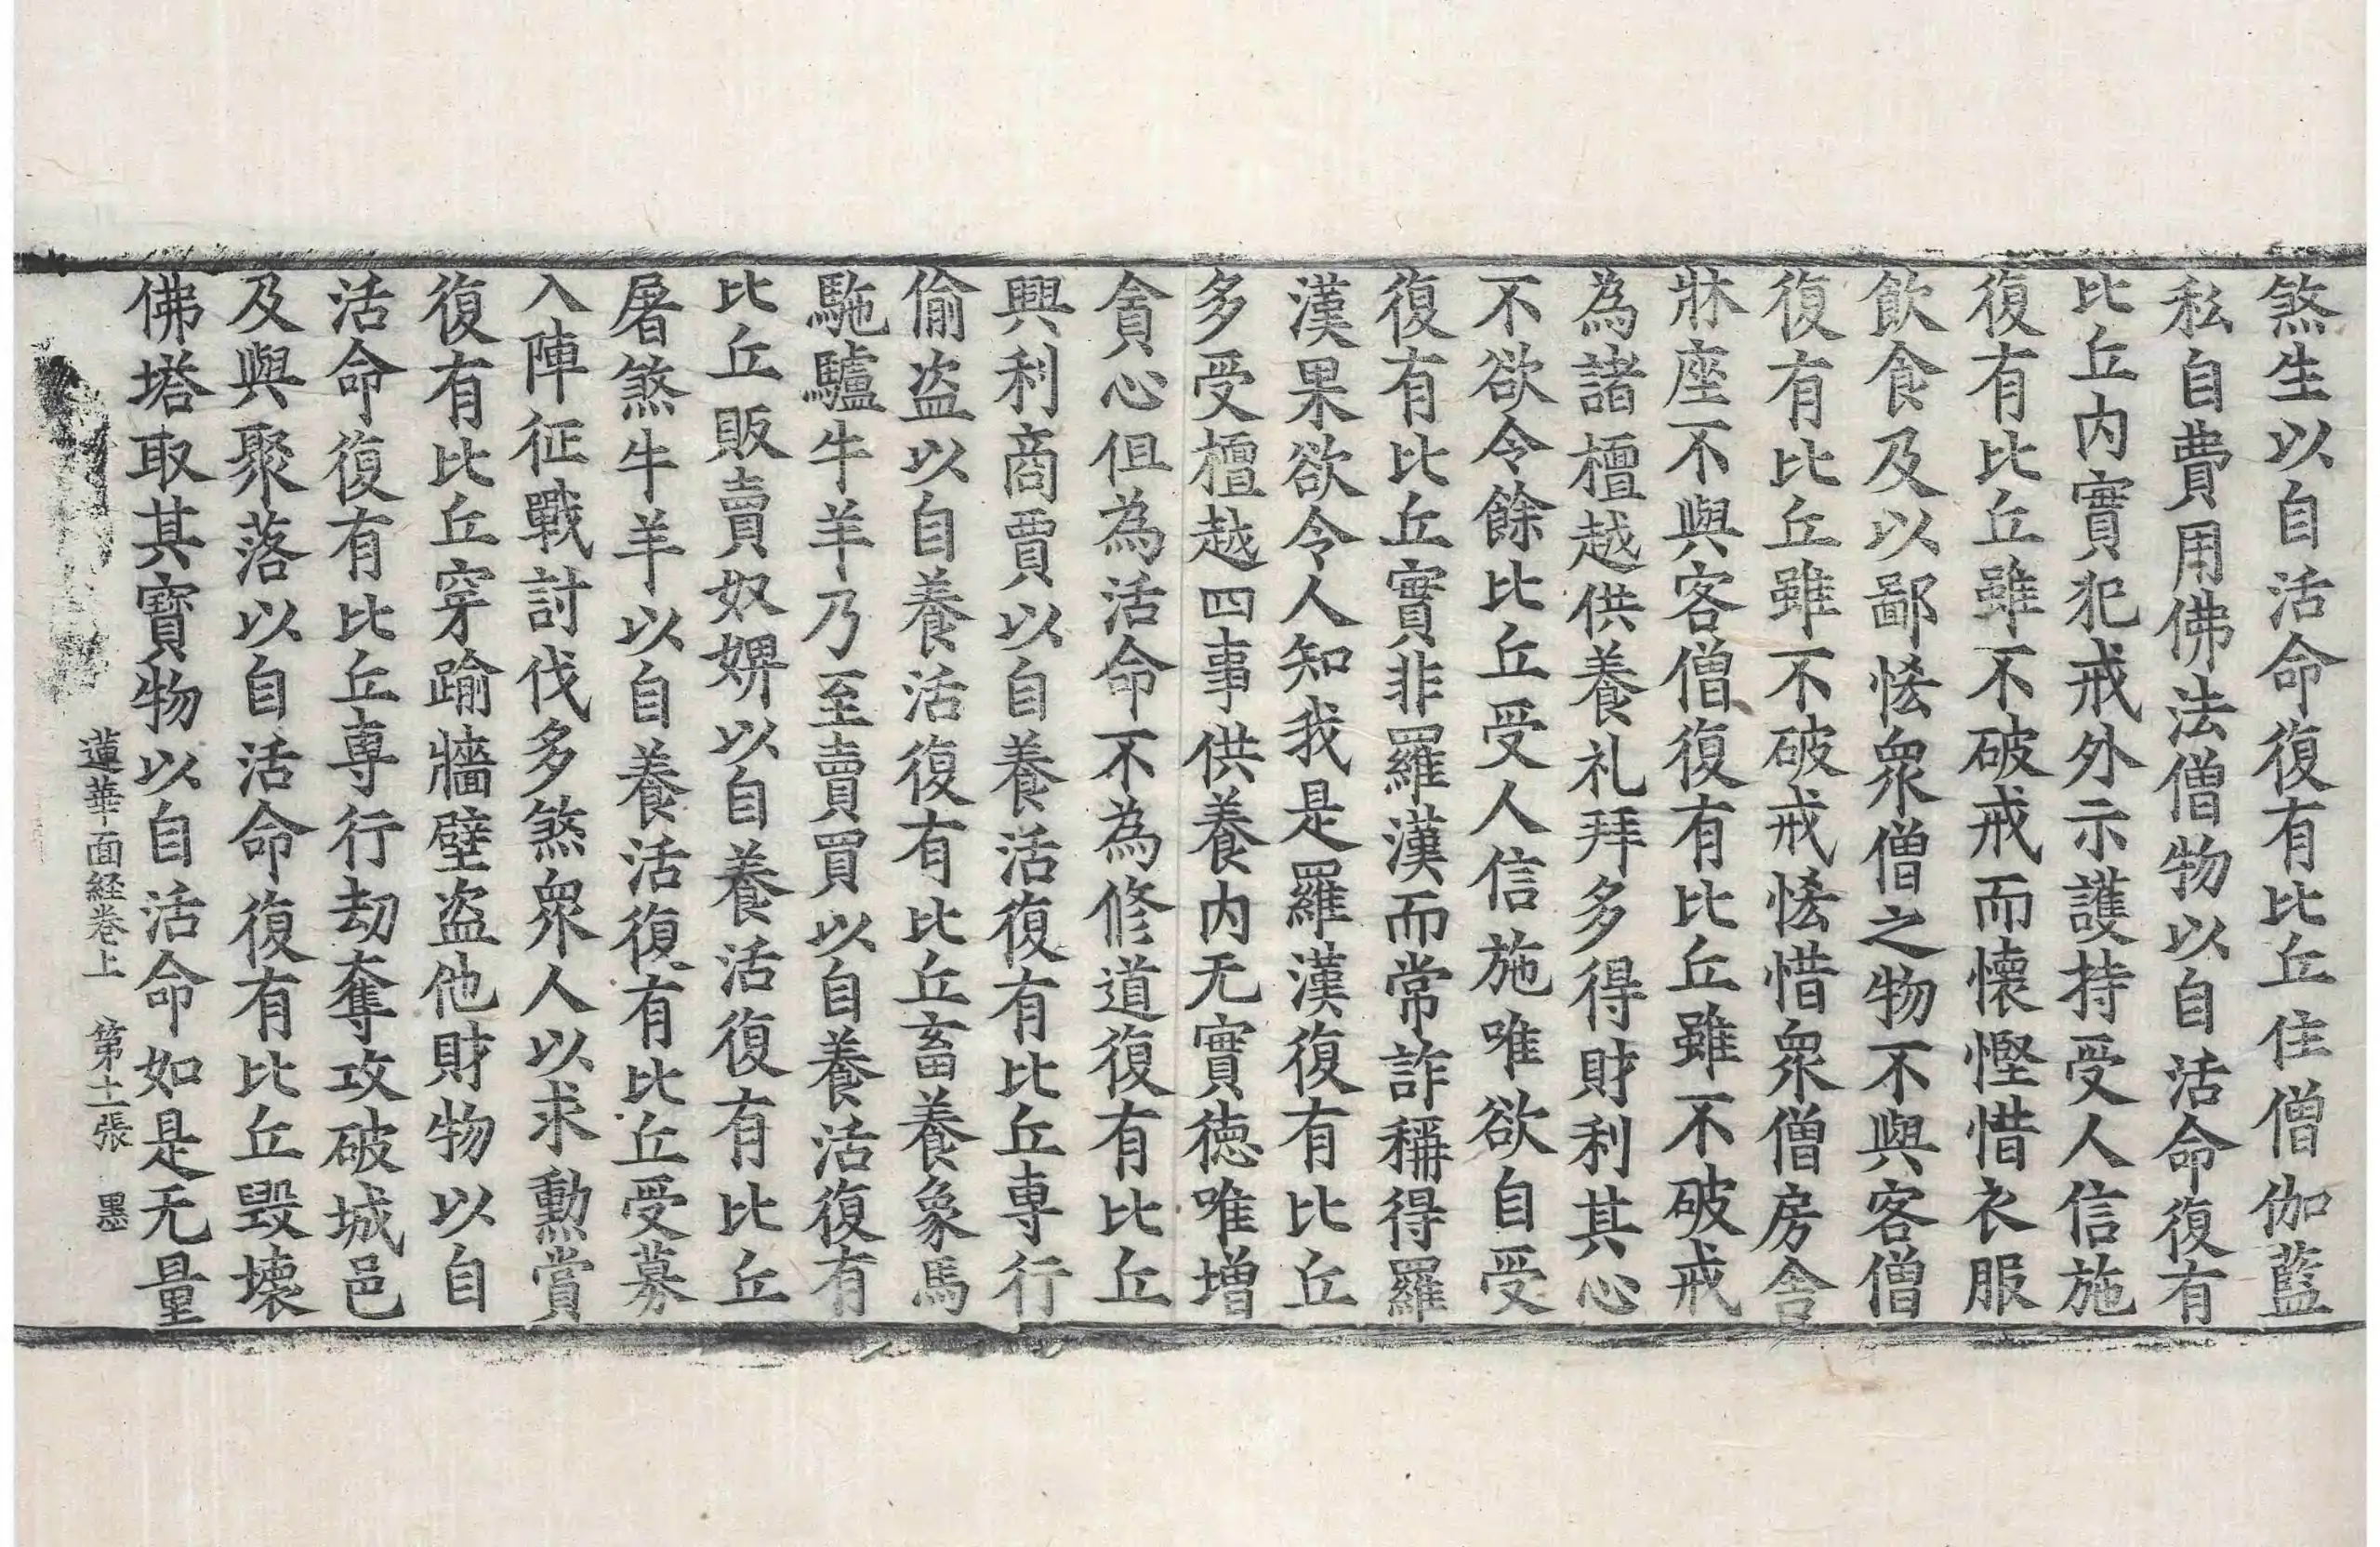 煞生以自活命復有比丘住僧伽藍
私自費用佛法僧物以自活命復有
比丘内實犯戒外示護持受人信施
復有比丘雖不破戒而懷慳惜衣服
飲食及以鄙悋衆僧之物不與客僧
復有比丘雖不破戒悋惜衆僧房舍
牀座不與客僧復有比丘雖不破戒
為諸檀越供養礼拜多得財利其心
不欲令餘比丘受人信施唯欲自受
復有比丘實非羅漢而常詐稱得羅
漢果欲令人知我是羅漢復有比丘
多受檀越四事供養内无實德唯增
貪心但為活命不為修道復有比丘
興利商賈以自養活復有比丘專行
偷盗以自養活復有比丘畜養象馬
駞驢牛羊乃至賣買以自養活復有
比丘販賣奴婢以自養活復有比丘
屠煞牛羊以自養活復有比丘受募
入陣征戰討伐多煞衆人以求勳賞
復有比丘穿踰牆壁盗他財物以自
活命復有比丘專行劫奪攻破城邑
及與聚落以自活命復有比丘毀壞
佛塔取其寶物以自活命如是无量
蓮華面経卷上 第十一張 墨